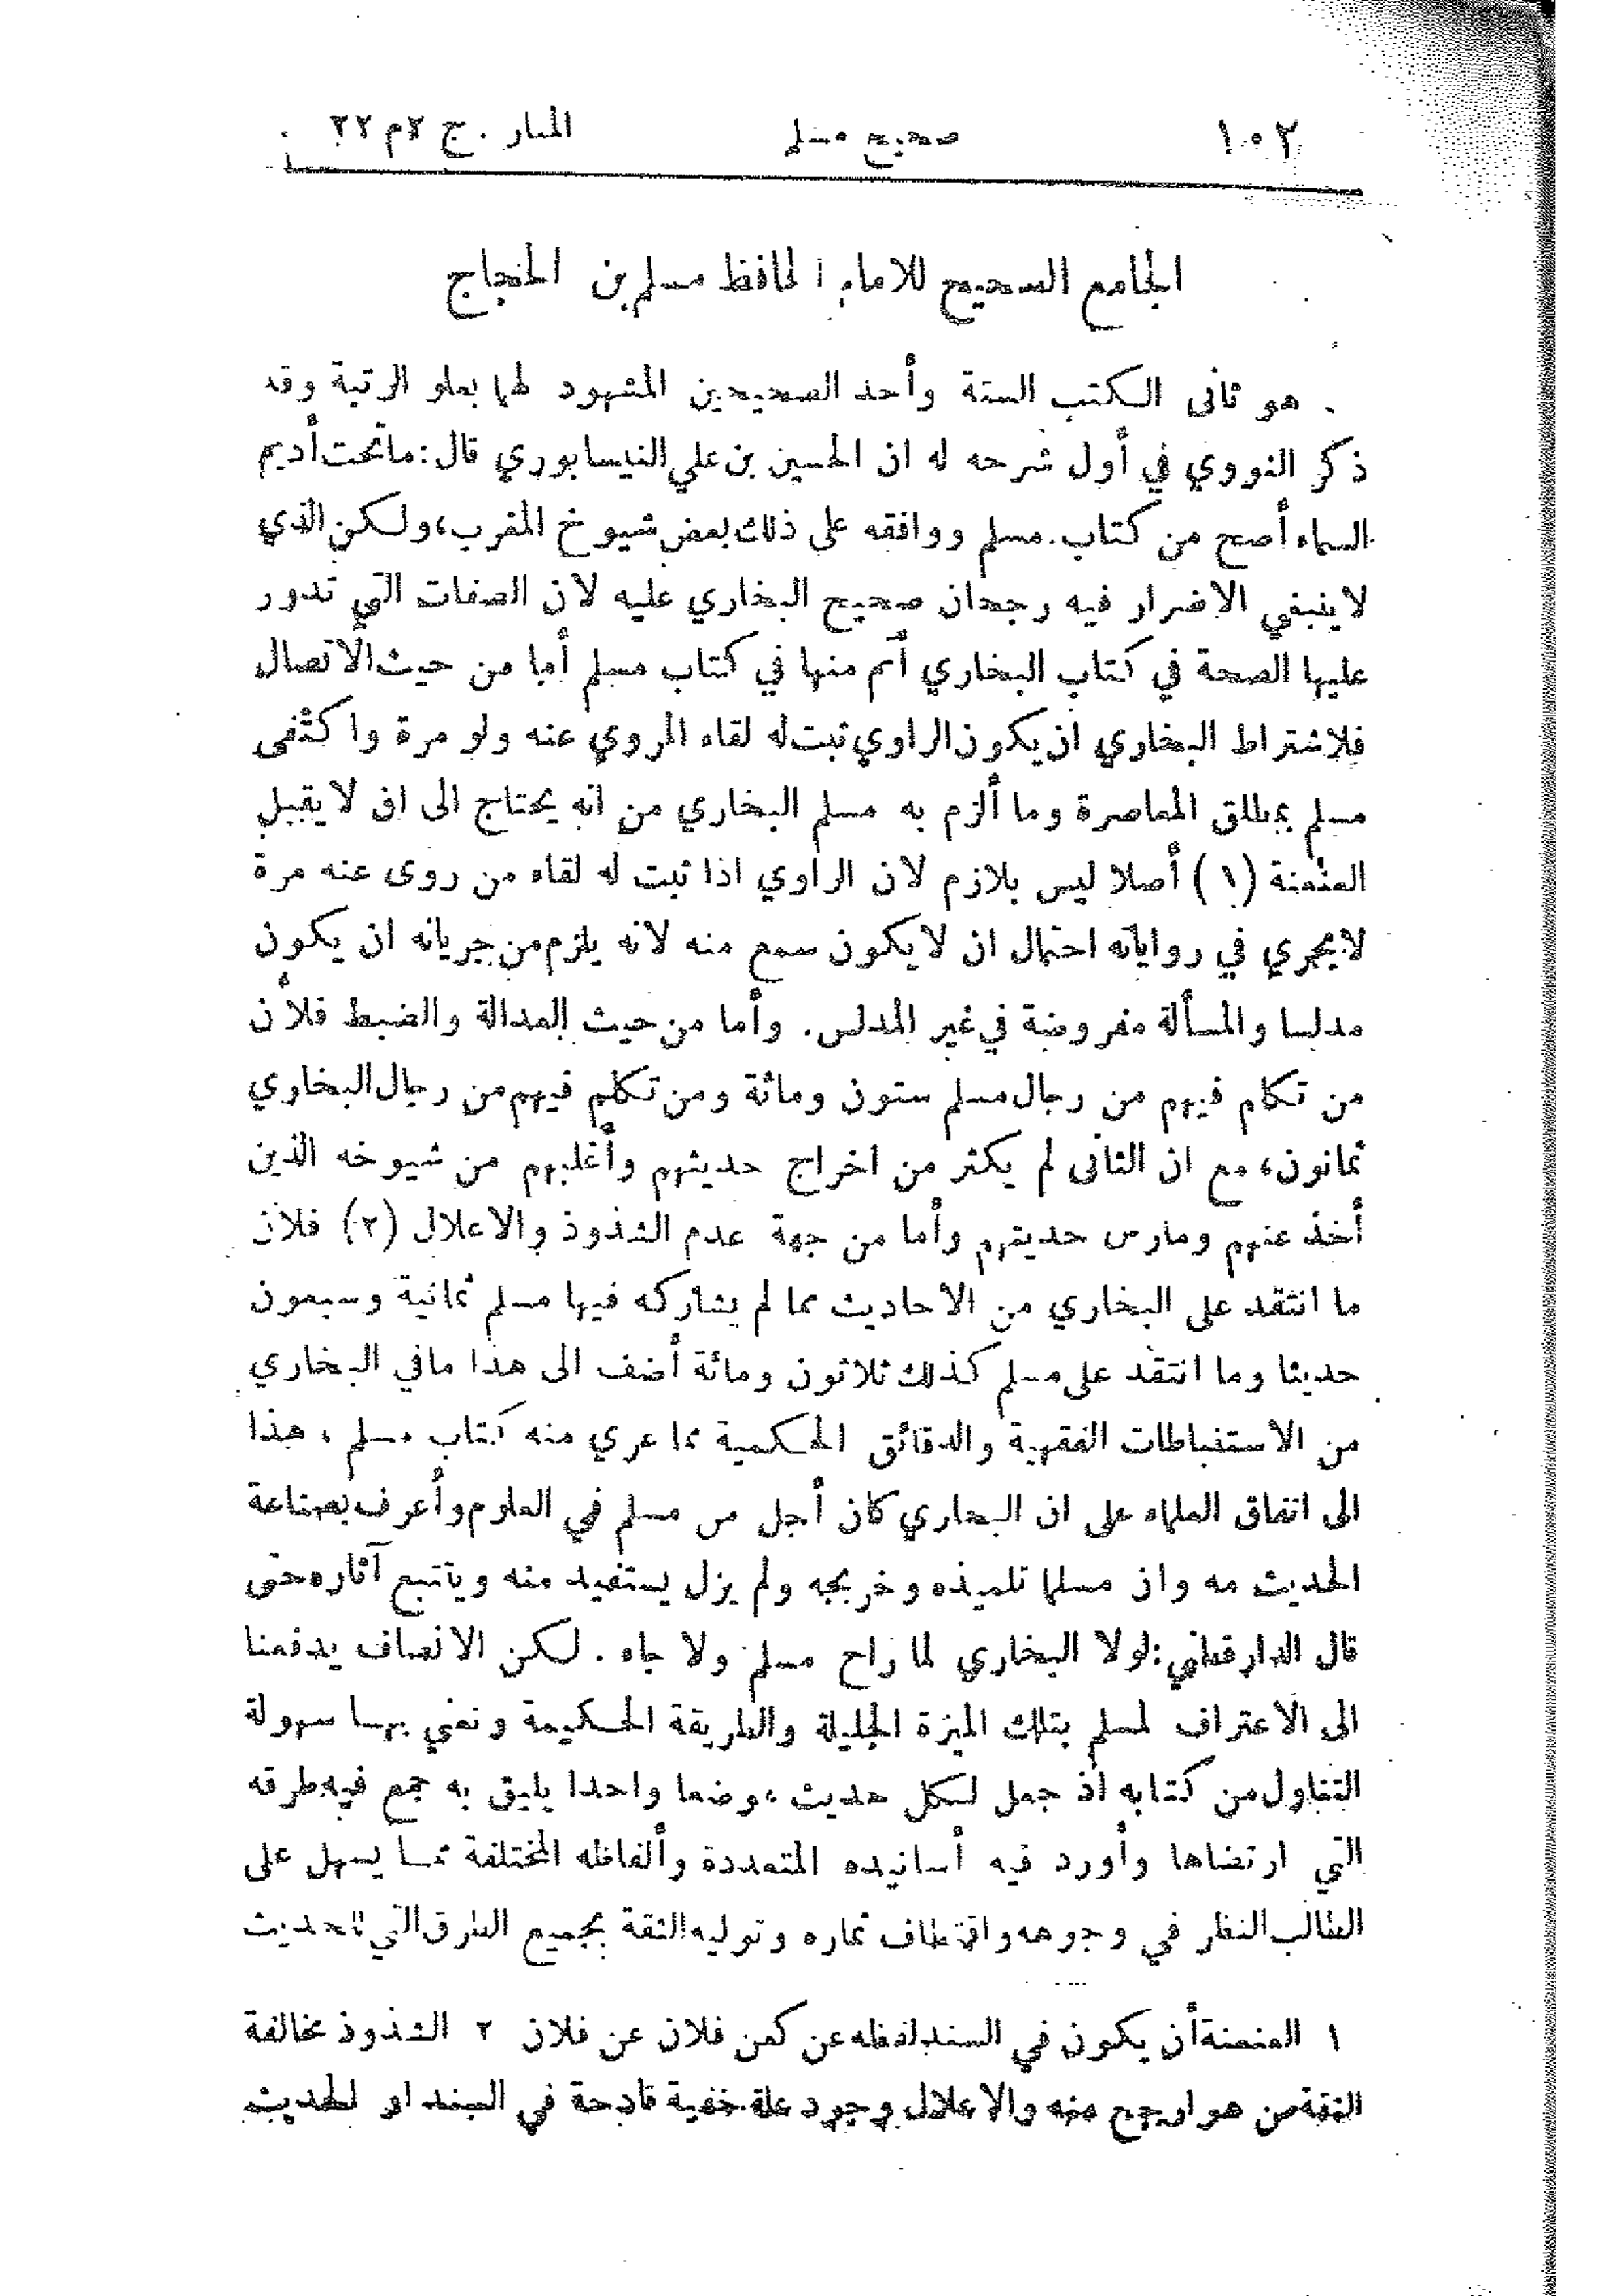 ١٠٢ صحيح مسلم المنار . ج ٢ م ٢٢
الجامع الصحيح للامام الحافظ مسلم بن الحجاج
هو ثانى الكتب الستة وأحد الصحيحين المشهود لهما بعلو الرتبة وقد
ذكر النووي في أول شرحه له ان الحسين بن علي النيسابوري قال: ما تحت أديم
السماء أصح من كتاب مسلم ووافقه على ذلك بعض شيوخ المغرب، ولكن الذي
لا ينبغي الاضرار فيه رجحان صحيح البخاري عليه لان الصفات التي تدور
عليها الصحة في كتاب البخاري أتم منها في كتاب مسلم أما من حيث الاتصال
فلاشتراط البخاري ان يكون الراوي ثبت له لقاء المروي عنه ولو مرة واكتفى
مسلم بمطلق المعاصرة وما ألزم به مسلم البخاري من انه يحتاج الى ان لا يقبل
العنعنة (١) أصلا ليس بلازم لان الراوي اذا ثبت له لقاء من روى عنه مرة
لا يجري في رواياته احتمال ان لا يكون سمع منه لانه يلزم من جريانه ان يكون
مدلسا والمسألة مفروضة في غير المدلس. وأما من حيث العدالة والضبط فلأن
من تكلم فيهم من رجال مسلم ستون ومائة ومن تكلم فيهم من رجال البخاري
ثمانون، مع ان الثانى لم يكثر من اخراج حديثهم وأغلبهم من شيوخه الذين
أخذ عنهم ومارس حديثهم وأما من جهة عدم الشذوذ والاعلال (٢) فلان
ما انتقد على البخاري من الاحاديث مما لم يشاركه فيها مسلم ثمانية وسبعون
حديثا وما انتقد على مسلم كذلك ثلاثون ومائة أضف الى هذا ما في البخاري
من الاستنباطات الفقهية والدقائق الحكمية مما عري منه كتاب مسلم، هذا
الى اتفاق العلماء على ان البخاري كان أجل من مسلم في العلوم وأعرف بصناعة
الحديث منه وان مسلما تلميذه وخريجه ولم يزل يستفيد منه ويتتبع آثاره حتى
قال الدارقطني: لولا البخاري لما راح مسلم ولا جاء . لكن الانصاف يدفعنا
الى الاعتراف لمسلم بتلك الميزة الجليلة والطريقة الحكيمة ونعني بها سهولة
التناول من كتابه اذ جعل لكل حديث موضعا واحدا يليق به جمع فيه طرقه
التي ارتضاها وأورد فيه أسانيده المتعددة وألفاظه المختلفة مما يسهل على
الطالب النظر في وجوهه واقتطاف ثماره وتوليه الثقة بجميع الطرق التي للحديث
١ العنعنة أن يكون في السند لفظه عن كعن فلان عن فلان ٢ الشذوذ مخالفة
الثقة من هو ارجح منه والاعلال وجود علة خفية قادحة في السند او الحديث